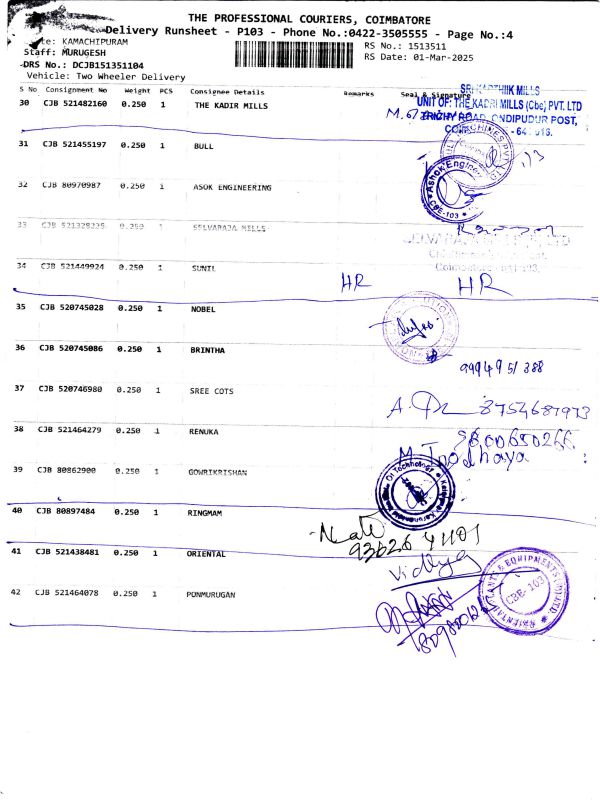 THE PROFESSIONAL COURIERS, COIMBATORE
Delivery Runsheet - P103 - Phone No.:0422-3505555 - Page No.:4
KAMACHIPURAM
Staff: MURUGESH
DRS No.: DCJB151351104
Vehicle: Two Wheeler Delivery
RS No.: 1513511
RS Date: 01-Mar-2025
S No Consignment No Weight PCS Consignee Details Remarks Seal & Signature
30 CJB 521482160 0.250 1 THE KADIR MILLS
SRI KARTHIK MILLS
UNIT OF: THE KADRI MILLS (Cbe) PVT. LTD
TRICHY ROAD, ONDIPUDUR POST,
31 CJB 521455197 0.250 1 BULL
32 CJB 80970987 0.250 1 ASOK ENGINEERING
Ashok Engineer
CBE-103
33 CJB 521328225 0.250 1 SELVARAJA MILLS
34 CJB 521449924 0.250 1 SUNIL
HR HR
35 CJB 520745028 0.250 1 NOBEL
36 CJB 520745086 0.250 1 BRINTHA
37 CJB 520746980 0.250 1 SREE COTS
8754687973
38 CJB 521464279 0.250 1 RENUKA
39 CJB 80862900 0.250 1 GOWRIKRISHAN
Of Technology
40 CJB 80897484 0.250 1 RINGMAM
41 CJB 521438481 0.250 1 ORIENTAL
Vidhya
42 CJB 521464078 0.250 1 PONMURUGAN
CBE-103